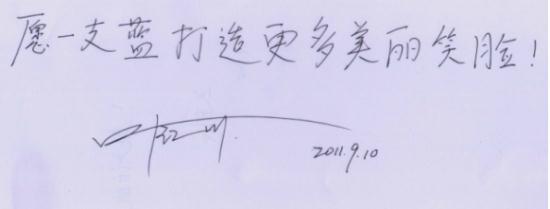 愿一支蓝打造更多美丽笑脸！
2011.9.10